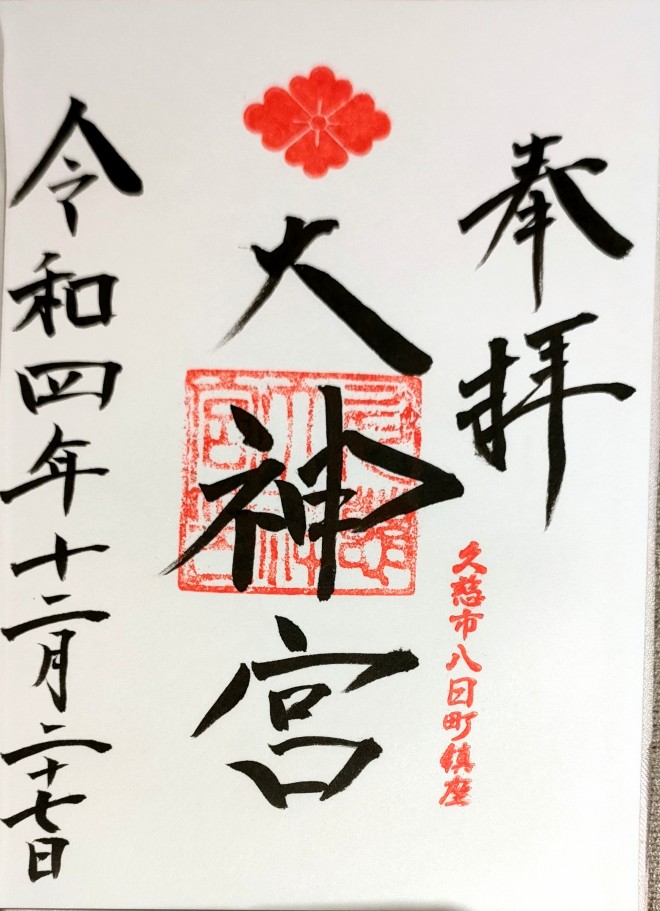 奉拝
久慈市八日町鎮座
大神宮
令和四年十二月二十七日